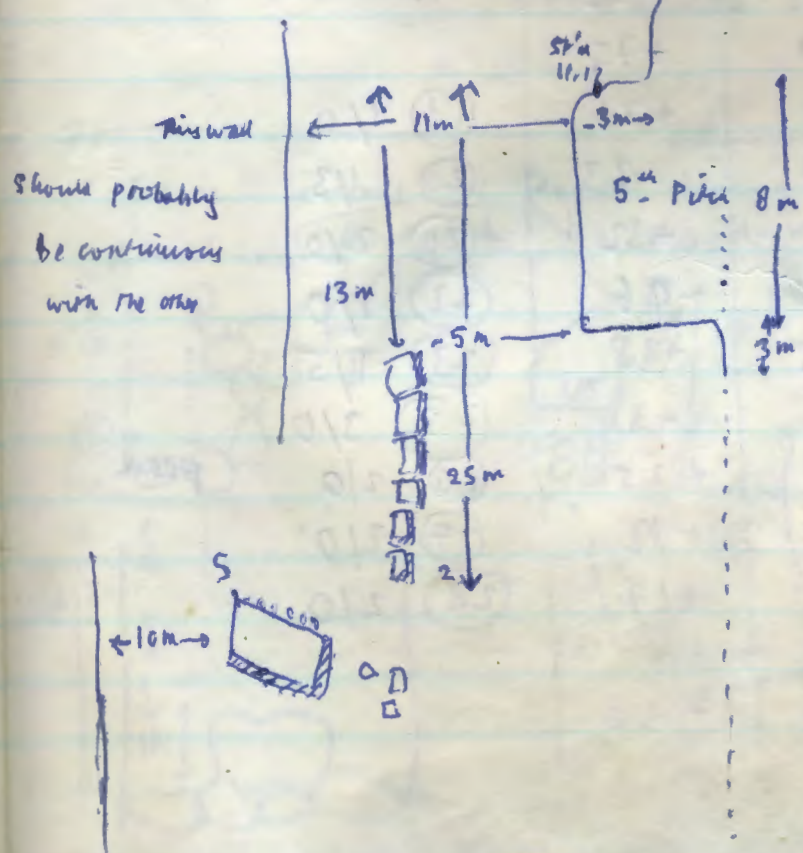 St'n
11.12
This wall
11m
-3m
Should probably
be continuous
with the other
5th Pitch
8m
13m
-5m
3m
25m
2
S
10m